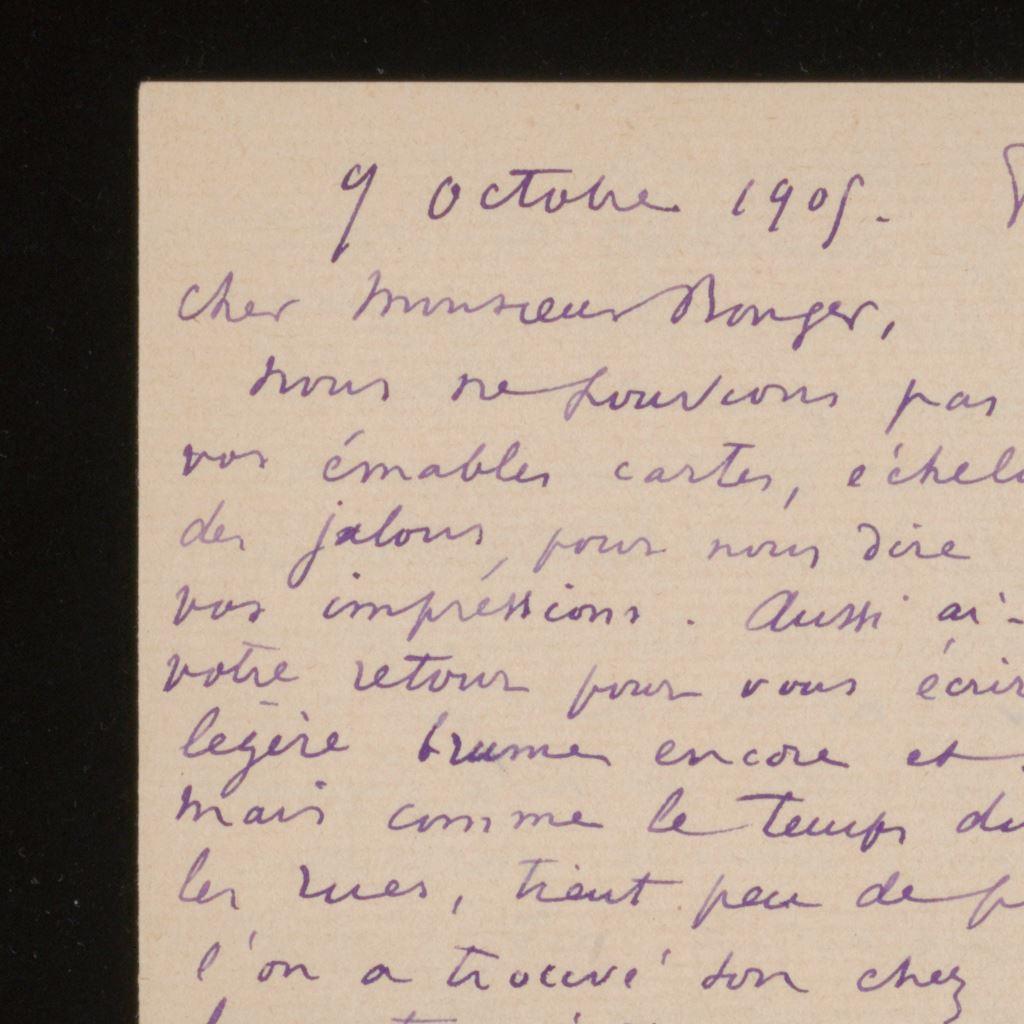 9 Octobre 1905.
cher Monsieur Bonger,
nous ne pouvions pas
vos émables cartes, échel
des jalons, pour nous dire
vos impréssions. Aussi ai-
votre retour pour vous écrir
legère brume encore et
mais comme le temps d
les rues, tient peu de p
l'on a trouvé son chez